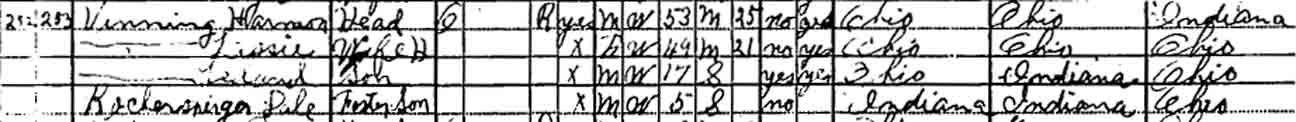 252 253 Vinning Harmon Head O R yes M W 53 M 25 no yes Ohio Ohio Indiana
Wife H X F W 49 M 21 no yes Ohio Ohio Ohio
Son X M W 17 S yes yes Ohio Indiana Ohio
Dale Foster Son X M W 5 S no Indiana Indiana Ohio